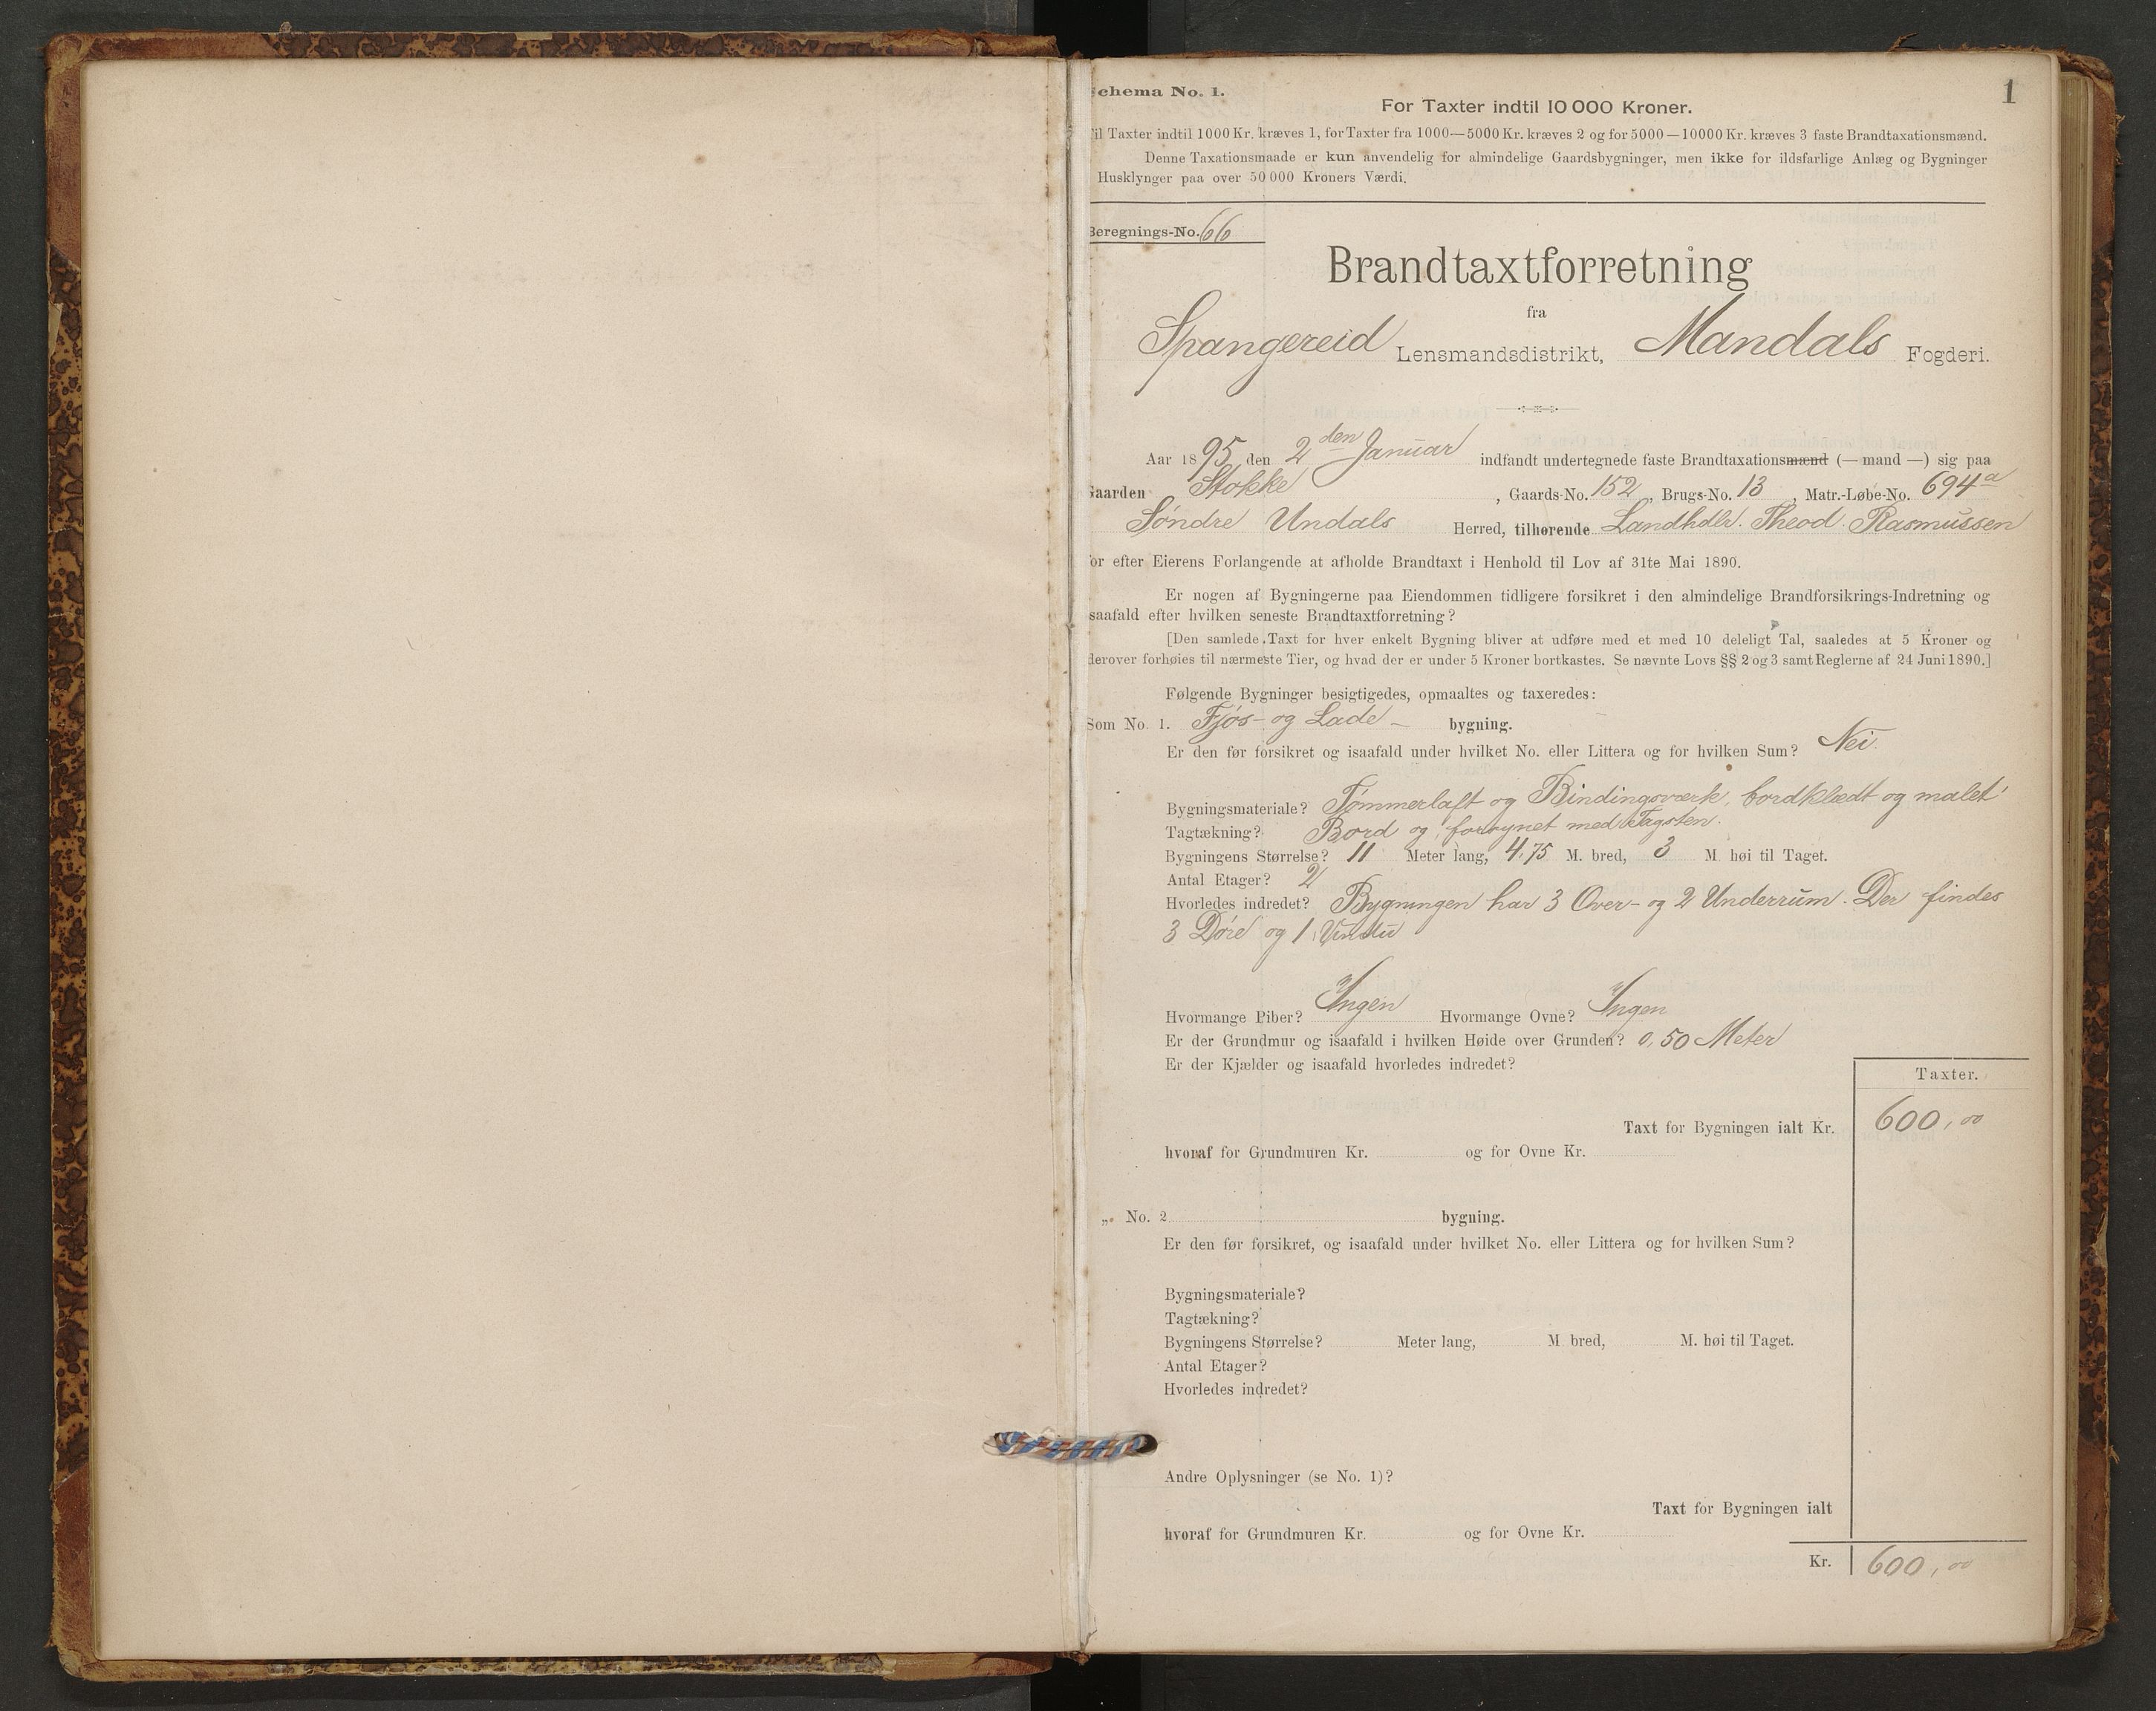 1
Schema No. 1.
For Taxter indtil 10 000 Kroner.
Til Taxter indtil 1000 Kr. kræves 1, for Taxter fra 1000—5000 Kr. kræves 2 og for 5000—10000 Kr. kræves 3 faste Brandtaxationsmænd.
Denne Taxationsmaade er kun anvendelig for almindelige Gaardsbygninger, men ikke for ildsfarlige Anlæg og Bygninger
Husklynger paa over 50 000 Kroners Værdi.
Beregnings-No. 66
Brandtaxtforretning
fra
Spangereid Lensmandsdistrikt, Mandals Fogderi.
Aar 1895, den 2den Januar indfandt undertegnede faste Brandtaxationsmænd (— mand —) sig paa
Gaarden Stokke, Gaards-No. 152, Brugs-No. 13, Matr.-Løbe-No. 694a
Søndre Undals Herred, tilhørende Landhdlr. Theod. Rasmussen
for efter Eierens Forlangende at afholde Brandtaxt i Henhold til Lov af 31te Mai 1890.
Er nogen af Bygningerne paa Eiendommen tidligere forsikret i den almindelige Brandforsikrings-Indretning og
isaafald efter hvilken seneste Brandtaxtforretning?
[Den samlede Taxt for hver enkelt Bygning bliver at udføre med et med 10 deleligt Tal, saaledes at 5 Kroner og
derover forhøies til nærmeste Tier, og hvad der er under 5 Kroner bortkastes. Se nævnte Lovs §§ 2 og 3 samt Reglerne af 24 Juni 1890.]
Følgende Bygninger besigtigedes, opmaaltes og taxeredes:
Som No. 1. Fjøs- og Lade- bygning.
Er den før forsikret og isaafald under hvilket No. eller Littera og for hvilken Sum? Nei.
Bygningsmateriale? Tømmerlaft og Bindingsværk, bordklædt og malet
Tagtækning? Bord og forsynet med Tagsten.
Bygningens Størrelse? 11 Meter lang, 4,75 M. bred, 3 M. høi til Taget.
Antal Etager? 2
Hvorledes indredet? Bygningen har 3 Over- og 2 Underrum. Der findes
3 Døre og 1 Vindu
Hvormange Piber? Ingen Hvormange Ovne? Ingen
Er der Grundmur og isaafald i hvilken Høide over Grunden? 0,50 Meter
Er der Kjælder og isaafald hvorledes indredet?
Taxter.
Taxt for Bygningen ialt Kr. 600,00
hvoraf for Grundmuren Kr. og for Ovne Kr.
„ No. 2 bygning.
Er den før forsikret, og isaafald under hvilket No. eller Littera og for hvilken Sum?
Bygningsmateriale?
Tagtækning?
Bygningens Størrelse? Meter lang, M. bred, M. høi til Taget.
Antal Etager?
Hvorledes indredet?
Andre Oplysninger (se No. 1)?
Taxt for Bygningen ialt
hvoraf for Grundmuren Kr. og for Ovne Kr.
Kr. 600,00